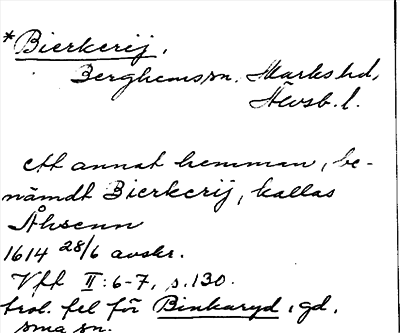 *Bierkerij,
Berghems sn. Marks hd,
Älvsb. l.
ett annat hemman, be-
nämdt Bierkerij, kallas
Åhsenn
1614 28/6 avskr.
Vff II:6-7, s. 130.
trol. fel för Binkaryd, gd,
sma sn.